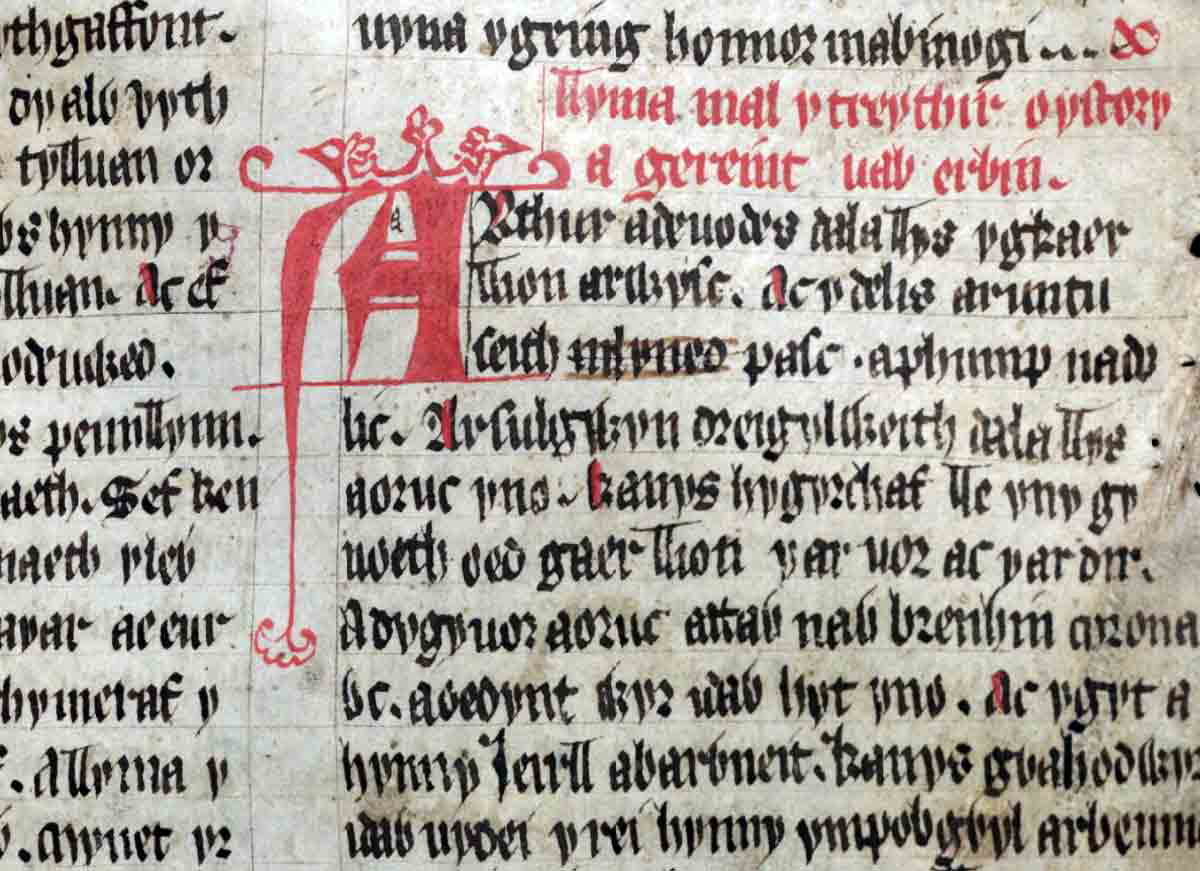 ythgaffont.
dy alỽ vyth
tylluan or
hynny y
lluan. Ac ef
odrucked.
ys penllynn.
aeth. Sef
naeth y
avar ac eur
hymeraf y
. Allyma y
yr
uyna ygeing honnor mabinogi...
llyma mal ytreythir oystory
a gereint uab erbin.
Arthur adeuodes dala llys ygkaer
llion arỽysc. Ac y delis aruntu
seith mlyned pasc. aphump nado
lic. Ar sulgỽyn dreigylgỽeith dala llys
aoruc yno. kanys hygyrchaf lle yny gy
uoeth oed gaer llion yar uor ac yar dir.
Adygyuor aoruc attaỽ naỽ brenhin corona
ỽc. aoedynt ỽyr idaỽ hyt yno. Ac ygyt a
hynny Ieirll abarỽneit. kanys gỽahodỽyr
idaỽ uydei yrei hynny ympob gỽyl arbenn